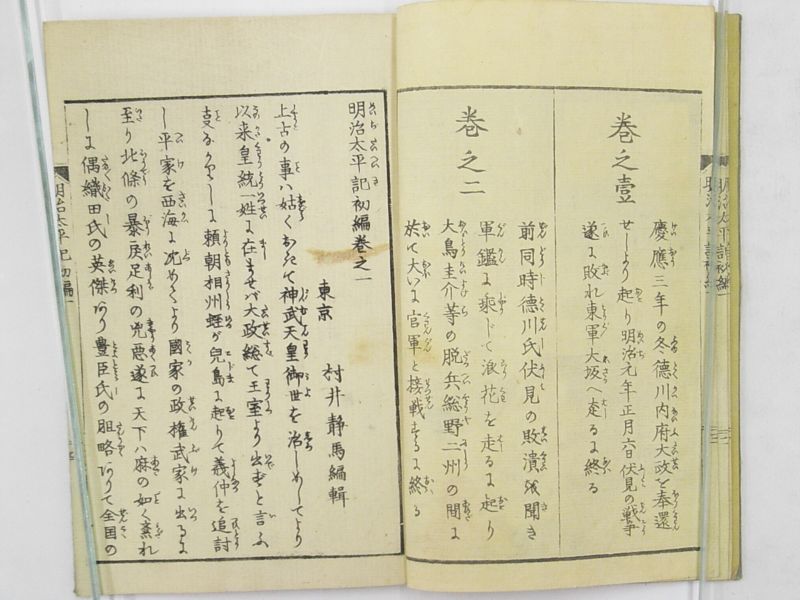 巻之壹
慶應三年の冬德川内府大政を奉還
せしより起り明治元年正月六日伏見の戦争
遂に敗れ東軍大坂へ走るに終る
巻之二
前同時德川氏伏見の敗潰を聞き
軍鑑に乗じて浪花を走るに起り
大鳥圭介等の脱兵総野二州の間に
於て大いに官軍と接戦するに終る
明治太平記初編巻之一
東京 村井静馬編輯
上古の事ハ姑くおきて神武天皇御世を治しめしてより
以来皇統一姓に在ませバ大政総て王室より出ずと言ふ
事なかりしに頼朝相州蛭が兒島に起りて義仲を追討
し平家を西海に沈めてより國家の政権武家に出るに
至り北條の暴戻足利の兇悪遂に天下ハ麻の如く紊れ
しに偶織田氏の英傑あり豊臣氏の胆略ありて全国の
明治太平記初編一